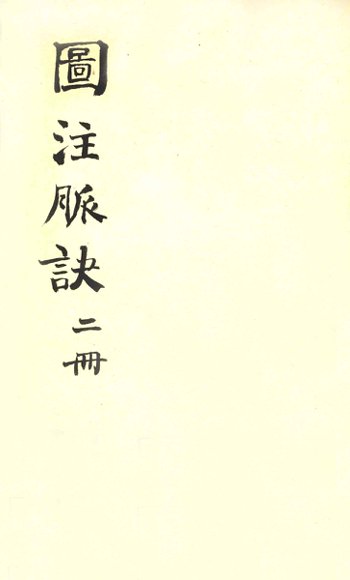 圖注脈訣二冊